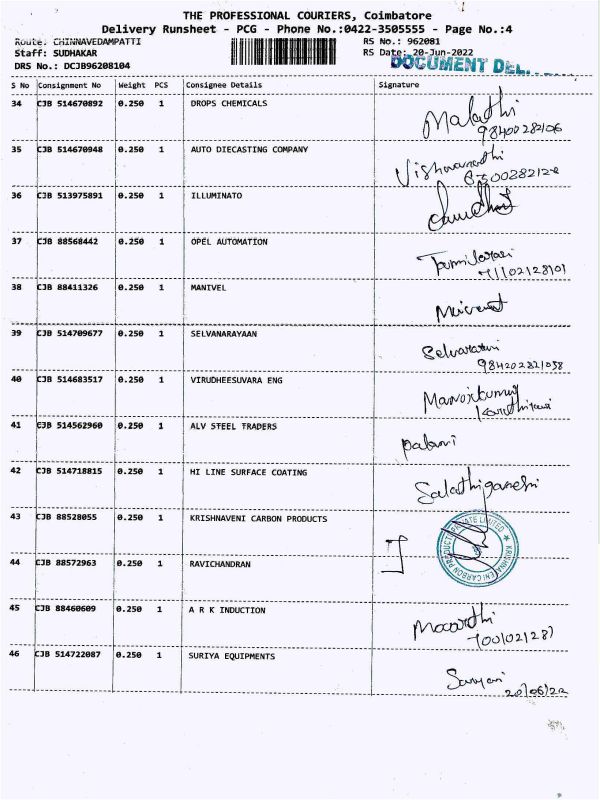 THE PROFESSIONAL COURIERS, Coimbatore
Delivery Runsheet - PCG - Phone No.:0422-3505555 - Page No.:4
Route: CHINNAVEDAMPATTI RS No.: 962081
Staff: SUDHAKAR RS Date: 20-Jun-2022
DRS No.: DCJB96208104 DOCUMENT DEL.
S No Consignment No Weight PCS Consignee Details Signature
34 CJB 514670892 0.250 1 DROPS CHEMICALS Malathi
35 CJB 514670948 0.250 1 AUTO DIECASTING COMPANY
36 CJB 513975891 0.250 1 ILLUMINATO
37 CJB 88568442 0.250 1 OPEL AUTOMATION
38 CJB 88411326 0.250 1 MANIVEL
39 CJB 514709677 0.250 1 SELVANARAYAAN
40 CJB 514683517 0.250 1 VIRUDHEESUVARA ENG
41 CJB 514562960 0.250 1 ALV STEEL TRADERS Palani
42 CJB 514718815 0.250 1 HI LINE SURFACE COATING
43 CJB 88528055 1 KRISHNAVENI CARBON PRODUCTS
44 CJB 88572963 0.250 1 RAVICHANDRAN
45 CJB 88460609 0.250 1 A R K INDUCTION
46 CJB 514722087 0.250 1 SURIYA EQUIPMENTS
20/06/22